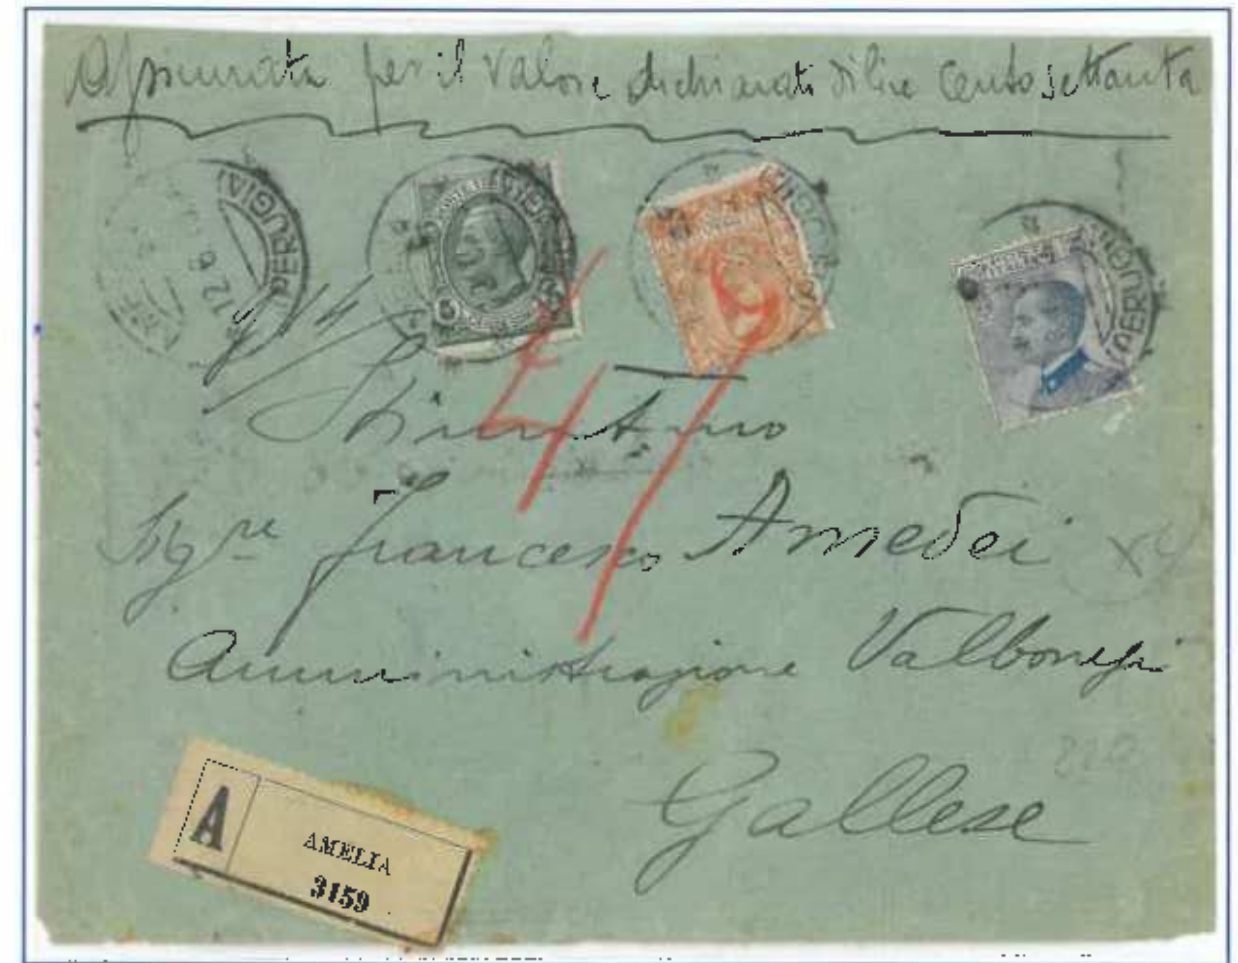 Assicurata per il valore dichiarato di lire Cento settanta
(PERUGIA)
12 6
(PERUGIA)
(PERUGIA)
47
Sig.re Francesco Amedei
Amministrazione Valbonesi
Gallese
220
A
AMELIA
3159